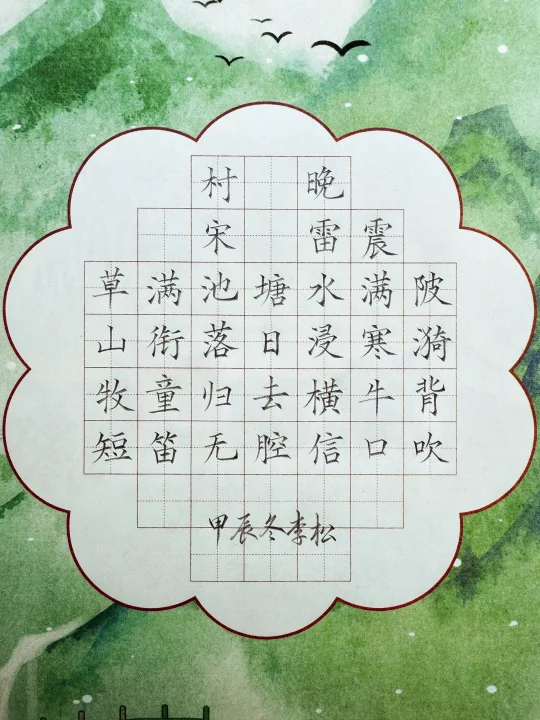 村晚
宋 雷震
草满池塘水满陂
山衔落日浸寒漪
牧童归去横牛背
短笛无腔信口吹
甲辰冬李松